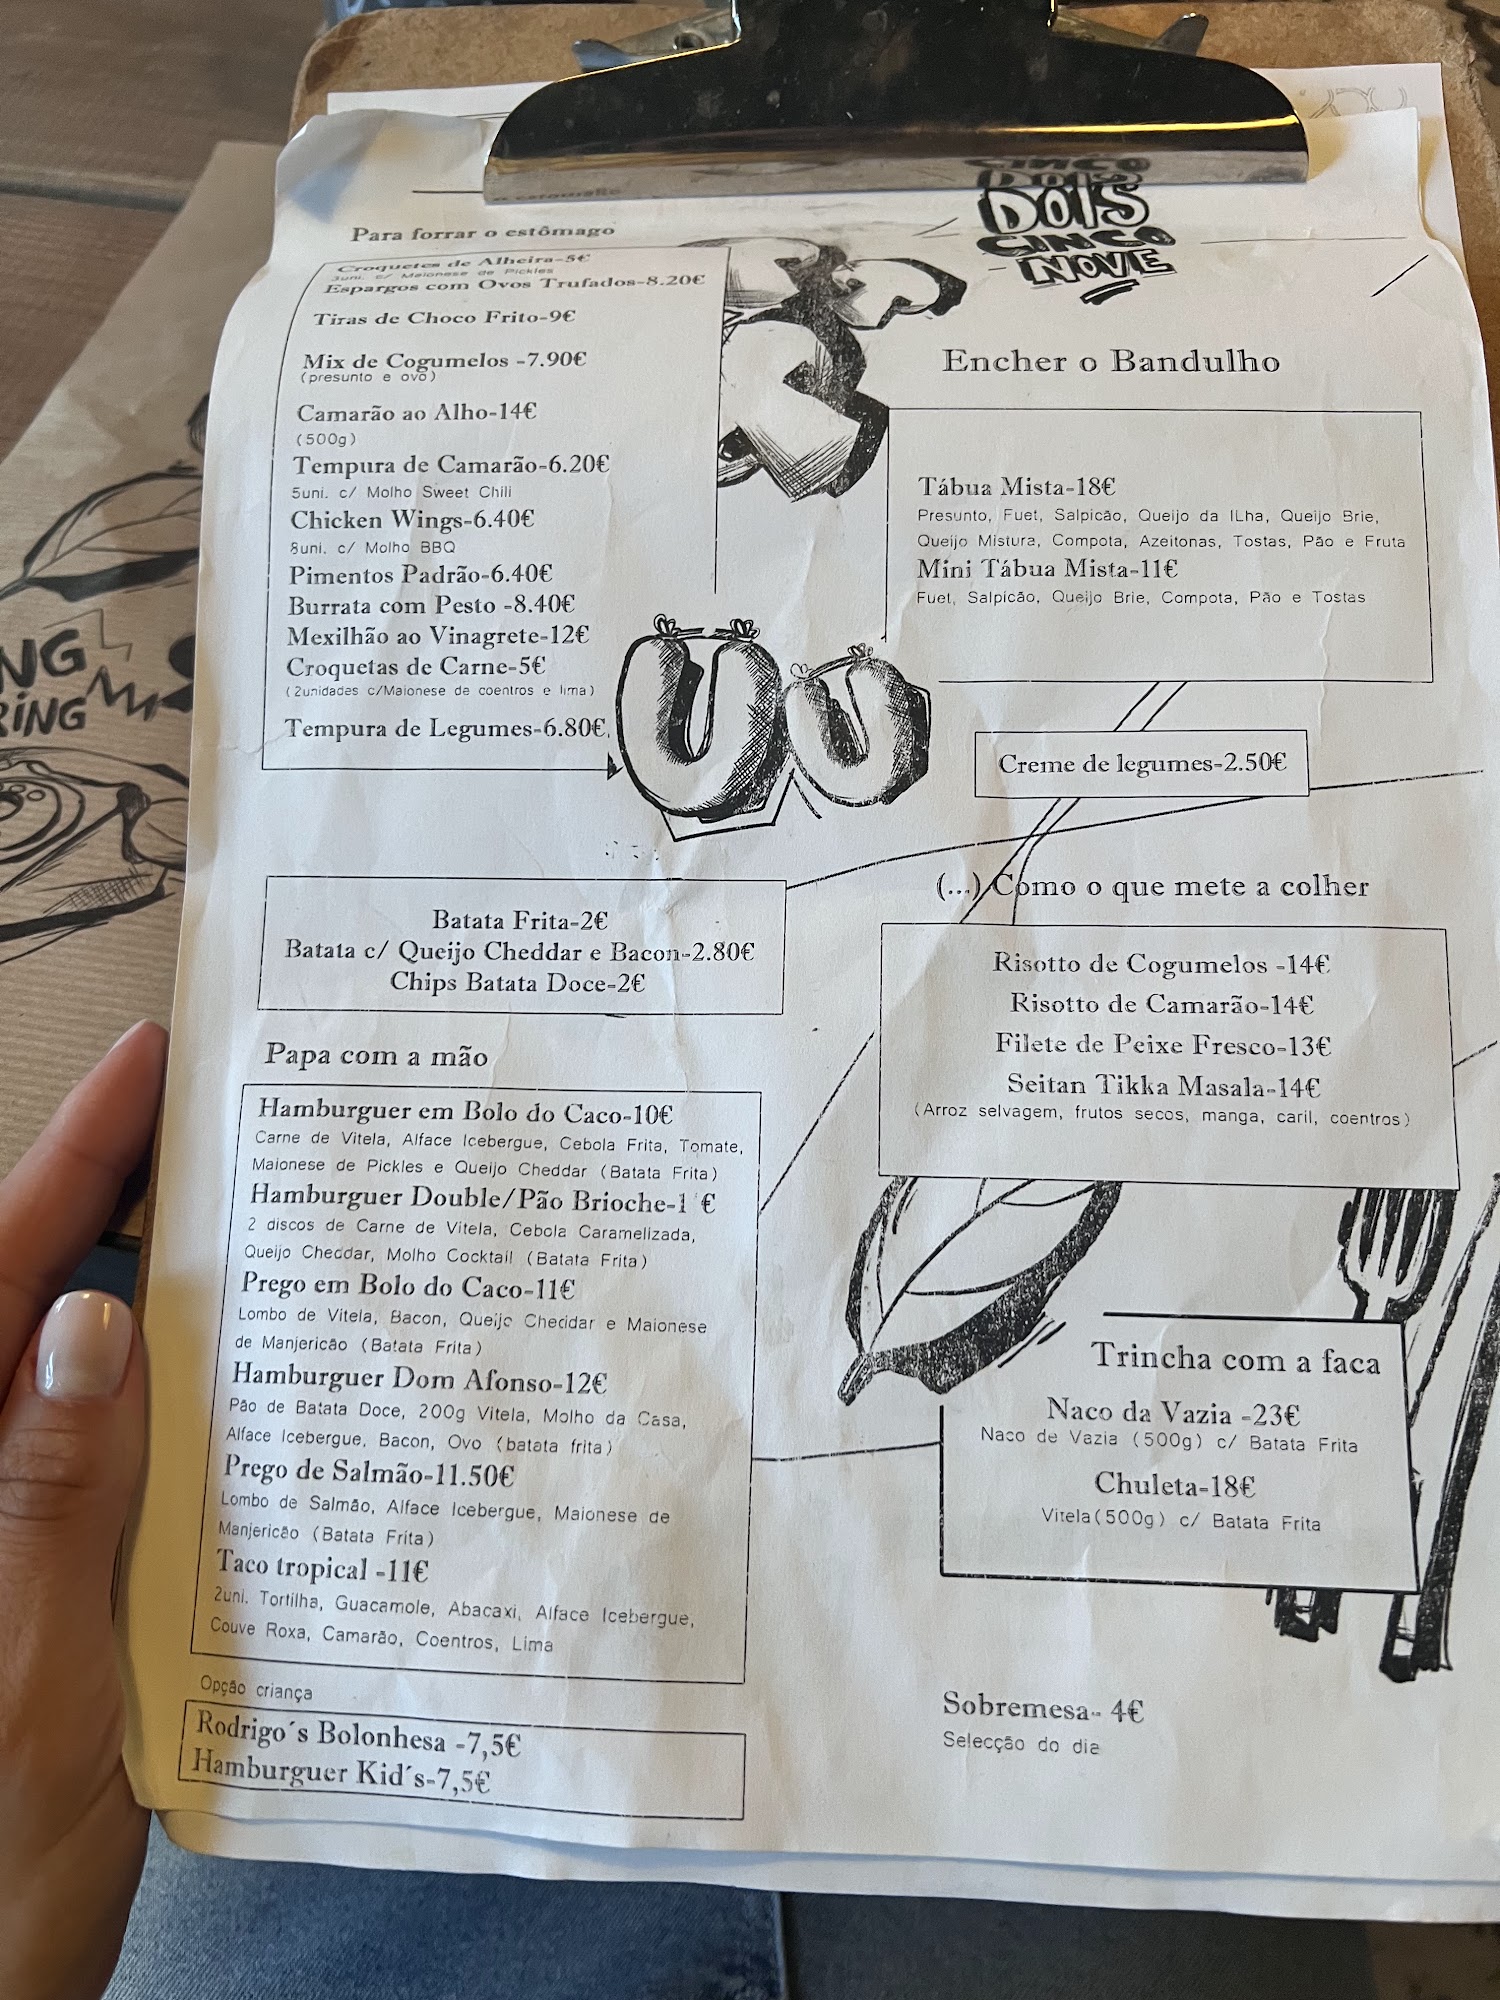 CINCO
DOIS
CINCO
NOVE
Para forrar o estômago
Croquetes de Alheira-5€
3uni. c/ Maionese de Pickles
Espargos com Ovos Trufados-8.20€
Tiras de Choco Frito-9€
Mix de Cogumelos -7.90€
(presunto e ovo)
Camarão ao Alho-14€
(500g)
Tempura de Camarão-6.20€
5uni. c/ Molho Sweet Chili
Chicken Wings-6.40€
8uni. c/ Molho BBQ
Pimentos Padrão-6.40€
Burrata com Pesto -8.40€
Mexilhão ao Vinagrete-12€
Croquetas de Carne-5€
(2unidades c/Maionese de coentros e lima)
Tempura de Legumes-6.80€
Batata Frita-2€
Batata c/ Queijo Cheddar e Bacon-2.80€
Chips Batata Doce-2€
Papa com a mão
Hamburguer em Bolo do Caco-10€
Carne de Vitela, Alface Icebergue, Cebola Frita, Tomate,
Maionese de Pickles e Queijo Cheddar (Batata Frita)
Hamburguer Double/Pão Brioche-1 €
2 discos de Carne de Vitela, Cebola Caramelizada,
Queijo Cheddar, Molho Cocktail (Batata Frita)
Prego em Bolo do Caco-11€
Lombo de Vitela, Bacon, Queijo Cheddar e Maionese
de Manjericão (Batata Frita)
Hamburguer Dom Afonso-12€
Pão de Batata Doce, 200g Vitela, Molho da Casa,
Alface Icebergue, Bacon, Ovo (batata frita)
Prego de Salmão-11.50€
Lombo de Salmão, Alface Icebergue, Maionese de
Manjericão (Batata Frita)
Taco tropical -11€
2uni. Tortilha, Guacamole, Abacaxi, Alface Icebergue,
Couve Roxa, Camarão, Coentros, Lima
Opção criança
Rodrigo´s Bolonhesa -7,5€
Hamburguer Kid´s-7,5€
Encher o Bandulho
Tábua Mista-18€
Presunto, Fuet, Salpicão, Queijo da ILha, Queijo Brie,
Queijo Mistura, Compota, Azeitonas, Tostas, Pão e Fruta
Mini Tábua Mista-11€
Fuet, Salpicão, Queijo Brie, Compota, Pão e Tostas
Creme de legumes-2.50€
(...) Como o que mete a colher
Risotto de Cogumelos -14€
Risotto de Camarão-14€
Filete de Peixe Fresco-13€
Seitan Tikka Masala-14€
(Arroz selvagem, frutos secos, manga, caril, coentros)
Trincha com a faca
Naco da Vazia -23€
Naco de Vazia (500g) c/ Batata Frita
Chuleta-18€
Vitela(500g) c/ Batata Frita
Sobremesa- 4€
Selecção do dia